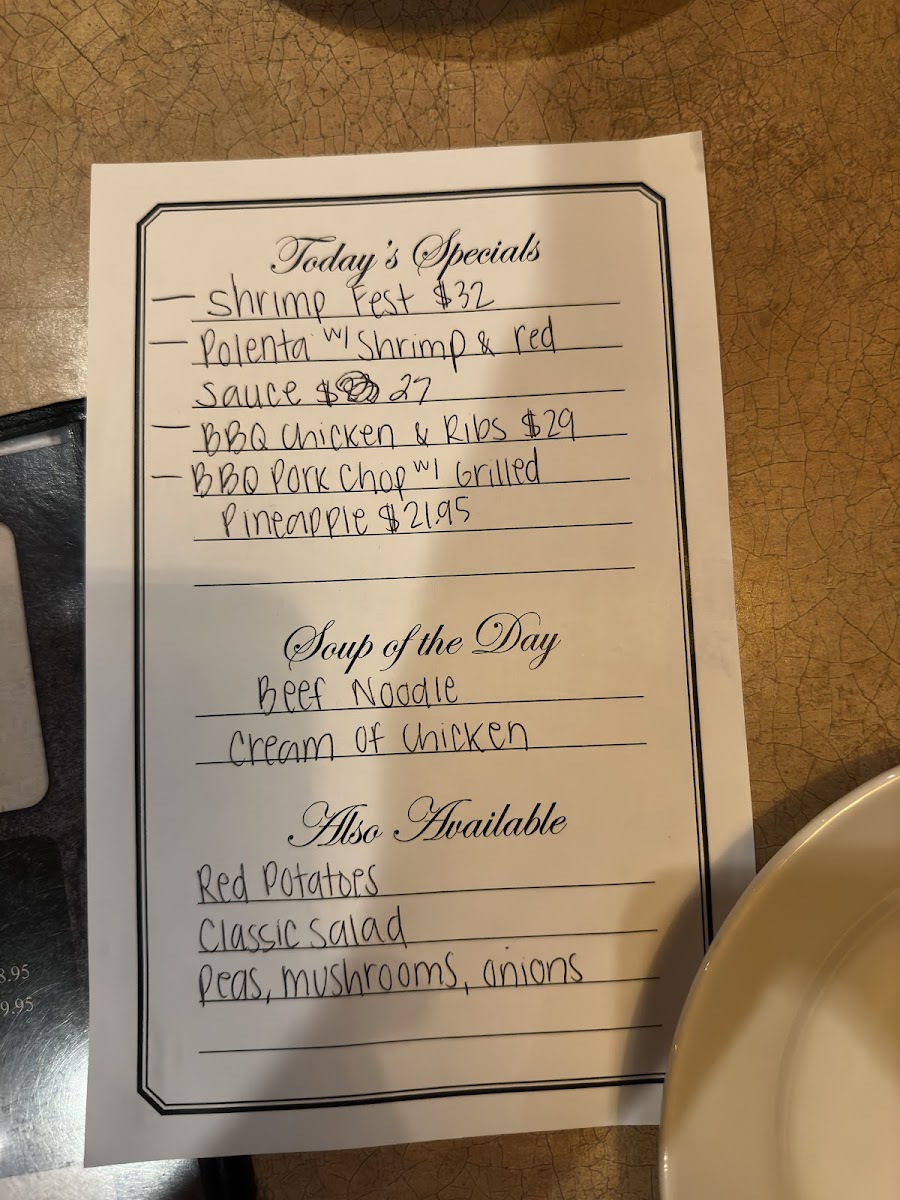 Today's Specials
— Shrimp Fest $32
— Polenta w/ Shrimp & red
sauce $ 27
— BBQ Chicken & Ribs $29
— BBQ Pork Chop w/ Grilled
Pineapple $21.95
Soup of the Day
Beef Noodle
Cream Of Chicken
Also Available
Red Potatoes
Classic Salad
Peas, mushrooms, onions
8.95
9.95